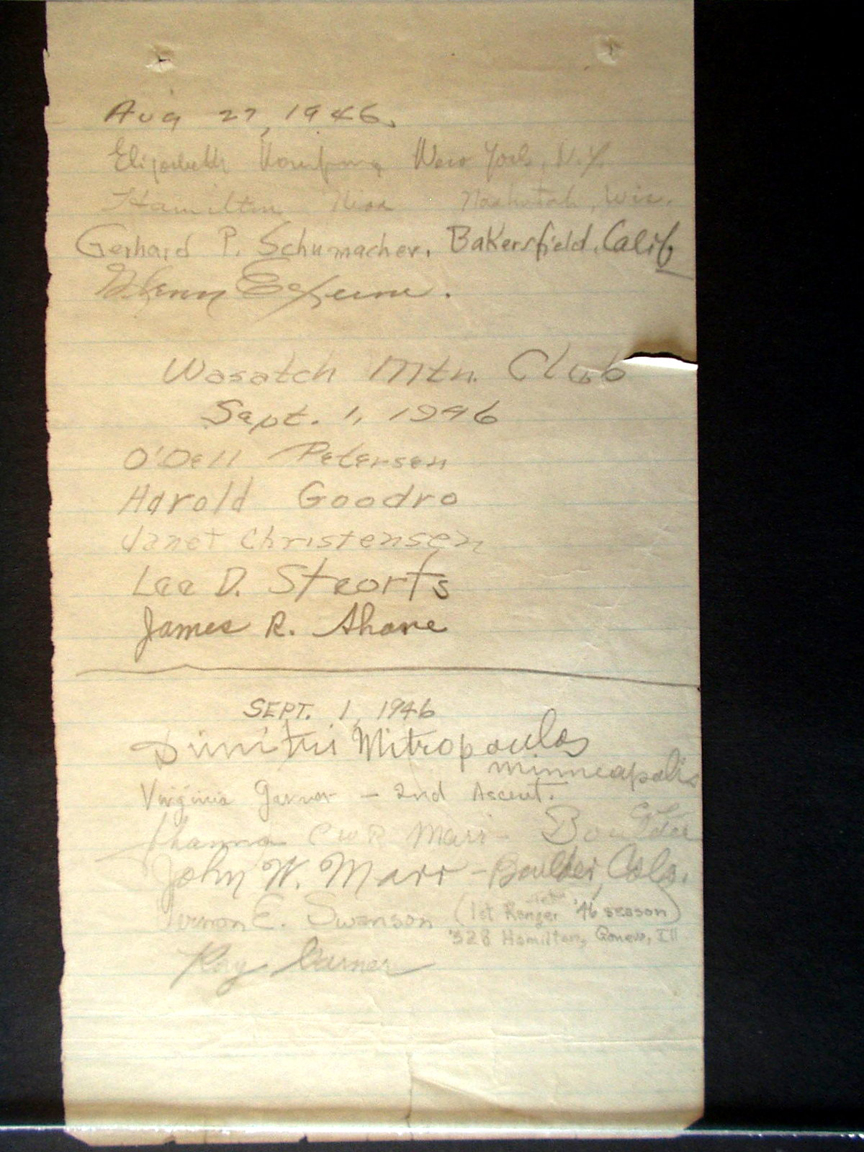 Aug 27, 1946.
Elizabeth New York, N.Y.
Hamilton Nashotah, Wis.
Gerhard P. Schumacher. Bakersfield, Calif
Glenn Exum.
Wasatch Mtn. Club
Sept. 1, 1946
O'Dell Petersen
Harold Goodro
Janet Christensen
Lee D. Steorts
James R. Shane
SEPT. 1, 1946
Dimitri Mitropoulos
Minneapolis
Virginia Garner - 2nd Ascent.
Marr - Boulder
John W. Marr - Boulder, Colo.
Vernon E. Swanson (1st Ranger '46 season)
528 Hamilton, Geneva, Ill
Ray Garner